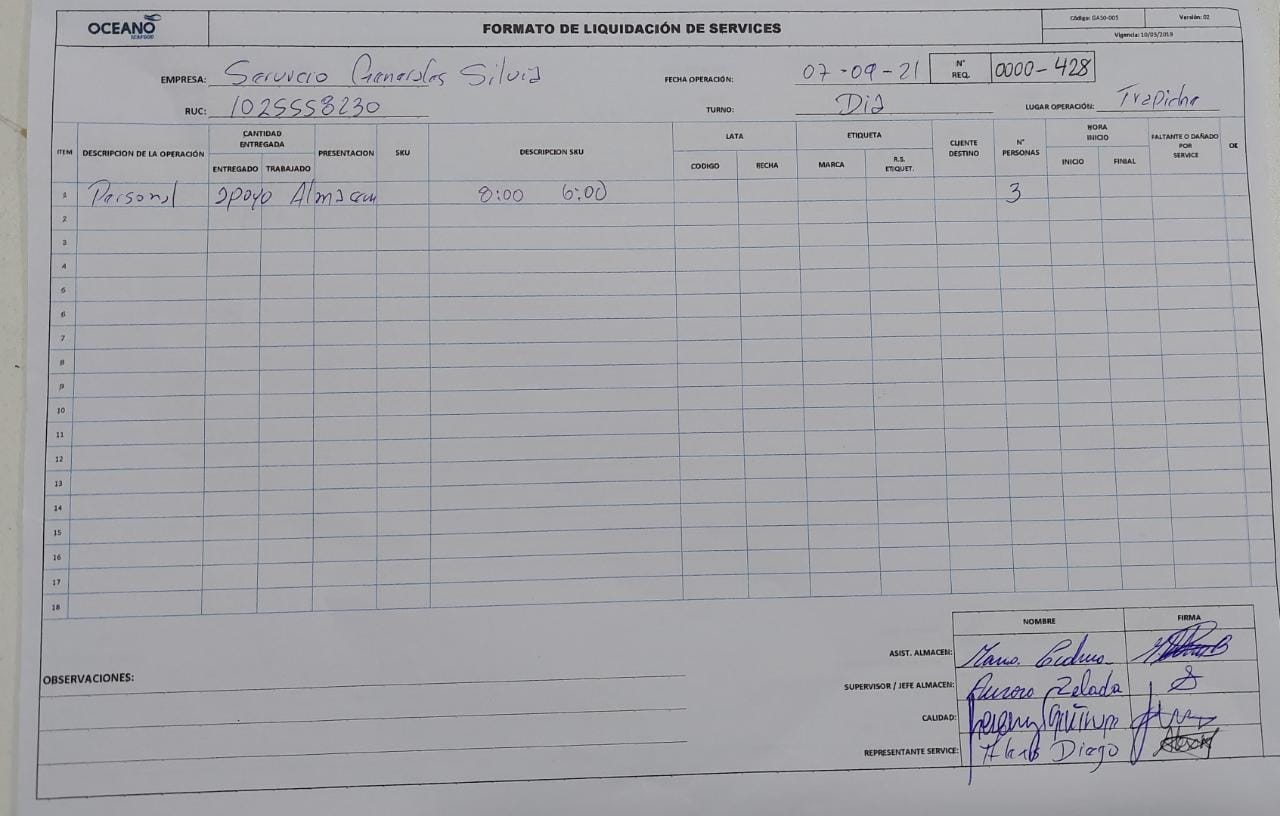 OCEANO
SEAFOOD
FORMATO DE LIQUIDACIÓN DE SERVICES
Código: GASO-005 Versión: 02
Vigencia: 10/05/2019
EMPRESA: Servicio Generales Silvia FECHA OPERACIÓN: 07-09-21 N° REQ. 0000-428
RUC: 1025558230 TURNO: Dia LUGAR OPERACIÓN: Trapiche
ITEM DESCRIPCION DE LA OPERACIÓN CANTIDAD ENTREGADA ENTREGADO TRABAJADO PRESENTACION SKU DESCRIPCION SKU LATA CODIGO FECHA ETIQUETA MARCA R.S. ETIQUET. CLIENTE DESTINO N° PERSONAS HORA INICIO INICIO FINIAL FALTANTE O DAÑADO POR SERVICE OE
1 Personal apoyo Almacen 8:00 6:00 3
2
3
4
5
6
7
8
9
10
11
12
13
14
15
16
17
18
NOMBRE FIRMA
ASIST. ALMACEN:
SUPERVISOR / JEFE ALMACEN: Aurora Zelada
CALIDAD:
REPRESENTANTE SERVICE: Diego
OBSERVACIONES: